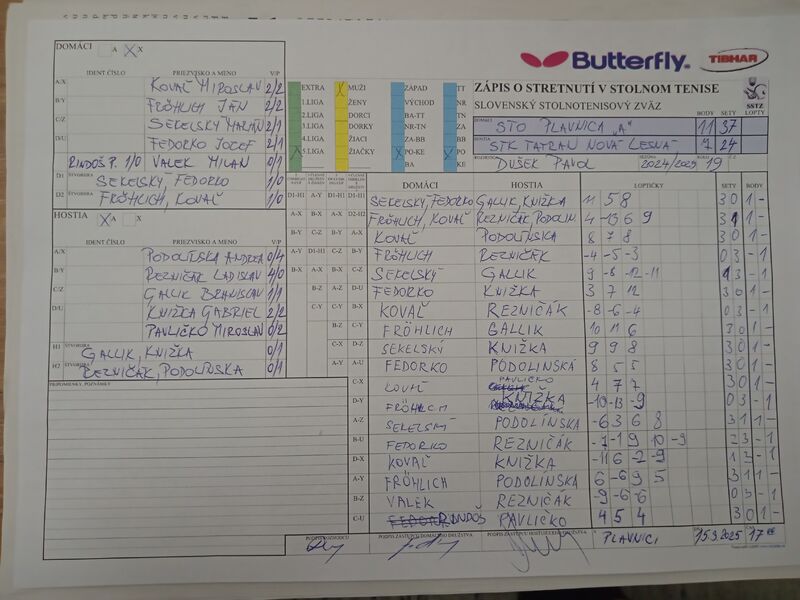 DOMÁCI A X
IDENT ČÍSLO PRIEZVISKO A MENO V/P
A/X KOVAĽ MIROSLAV 2/2
B/Y FRÖHLICH JÁN 2/2
C/Z SEKELSKÝ MARIÁN 2/1
D/U FEDORKO JOZEF 2/1
RINDOŠ P. 1/0 VALEK MILAN 0/1
D1 ŠTVORHRA SEKELSKÝ, FEDORKO 1/0
D2 ŠTVORHRA FRÖHLICH, KOVAĽ 1/0
HOSTIA X A X
IDENT ČÍSLO PRIEZVISKO A MENO V/P
A/X PODOLINSKA ANDREA 0/4
B/Y REZNIČÁK LADISLAV 4/0
C/Z GALLIK BRANISLAV 1/1
D/U KNIŽKA GABRIEL 2/2
PAVLIČKO MIROSLAV 0/2
H1 ŠTVORHRA GALLIK, KNIŽKA 0/1
H2 ŠTVORHRA REZNIČÁK, PODOLINSKA 0/1
PRIPOMIENKY, POZNÁMKY
Butterfly TIBHAR
EXTRA X MUŽI ZÁPAD TT
1.LIGA ŽENY VÝCHOD NR
2.LIGA DORCI BA-TT TN
3.LIGA DORKY NR-TN ZA
4.LIGA ŽIACI ZA-BB BB
5.LIGA ŽIAČKY PO-KE PO
BA KE
ZÁPIS O STRETNUTÍ V STOLNOM TENISE
SLOVENSKÝ STOLNOTENISOVÝ ZVÄZ SSTZ
BODY SETY LOPTY
DOMÁCI STO PLAVNICA "A" 11 37
HOSTIA STK TATRAN NOVÁ LESNÁ 7 24
ROZHODCA DUŠEK PAVOL 2024/2025 19
DOMÁCI HOSTIA LOPTIČKY SETY BODY
D1-H1 A-Y D1-H1 SEKELSKÝ, FEDORKO GALLIK, KNIŽKA 11 5 8 3 0 1 -
A-X B-X A-X D2-H2 FRÖHLICH, KOVAĽ REZNIČÁK, PODOLIN 4 -13 6 9 3 1 1 -
B-Y C-Z B-Y A-X KOVAĽ PODOLINSKA 8 7 8 3 0 1 -
A-Y D1-H1 C-Z B-Y FRÖHLICH REZNIČÁK -4 -5 -3 0 3 - 1
B-X A-X B-X C-Z SEKELSKÝ GALLIK 9 -8 -12 -11 1 3 - 1
A-Z D-U FEDORKO KNIŽKA 3 7 12 3 0 1 -
C-Y C-Y B-X KOVAĽ REZNIČÁK -8 -6 -4 0 3 - 1
B-Z C-Y FRÖHLICH GALLIK 10 11 6 3 0 1 -
C-X D-Z SEKELSKÝ KNIŽKA 9 9 8 3 0 1 -
A-Y A-U FEDORKO PODOLINSKÁ 8 5 5 3 0 1 -
C-X KOVAĽ PAVLIČKO 4 7 7 3 0 1 -
D-Y FRÖHLICH KNIŽKA -10 -13 -9 0 3 - 1
A-Z SEKELSKÝ PODOLINSKA -6 3 6 8 3 1 1 -
B-U FEDORKO REZNIČÁK -7 -19 10 -9 2 3 - 1
D-X KOVAĽ KNIŽKA -11 6 -2 -9 1 3 - 1
A-Y FRÖHLICH PODOLINSKA 6 -6 9 5 3 1 1 -
B-Z VALEK REZNIČÁK -9 -6 -6 0 3 - 1
C-U RINDOŠ PAVLIČKO 4 5 4 3 0 1 -
PODPIS ROZHODCU PODPIS ZÁSTUPCU DOMÁCEHO DRUŽSTVA PODPIS ZÁSTUPCU HOSŤUJÚCEHO DRUŽSTVA V PLAVNICI 15.3.2025 17